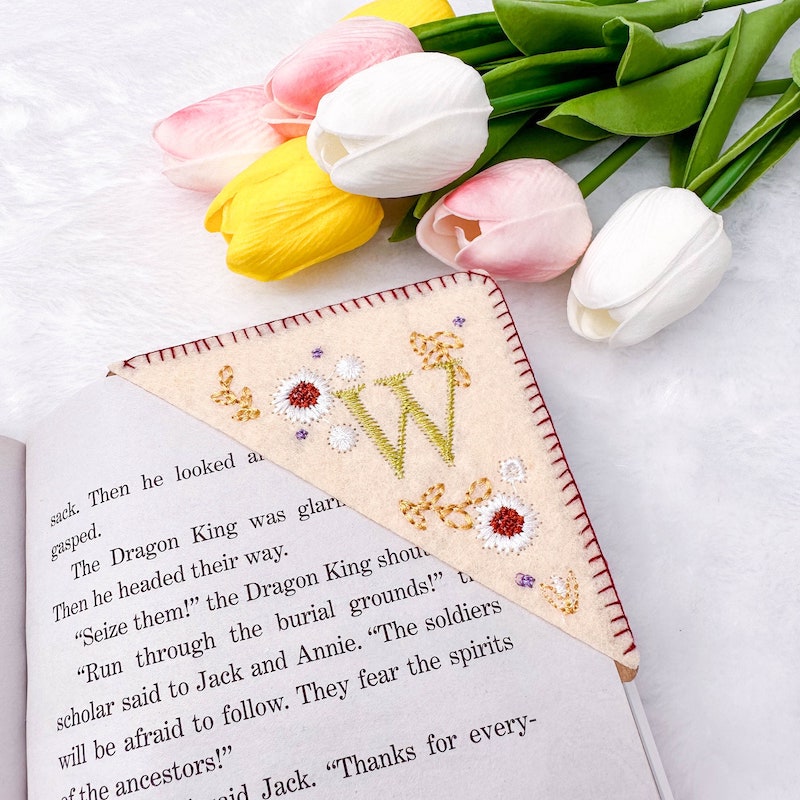 W
sack. Then he looked
gasped.
The Dragon King was
Then he headed their way.
“Seize them!” the Dragon King
“Run through the burial grounds!”
scholar said to Jack and Annie. “The soldiers
will be afraid to follow. They fear the spirits
of the ancestors!”
Jack. “Thanks for every-